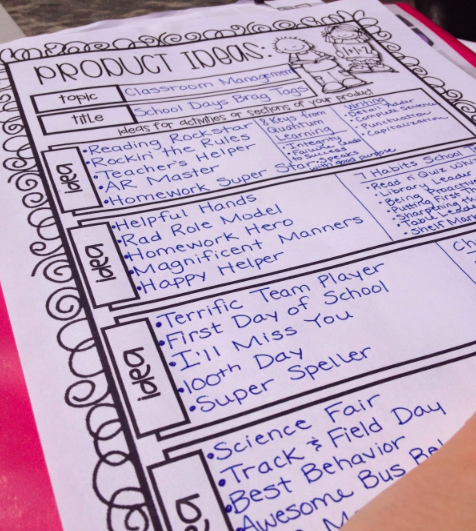 PRODUCT IDEAS:
1+1=?
topic
Classroom Management
title
School Days Brag Tags
ideas for activities or sections of your product
idea
•Reading Rockstar
•Rockin' the Rules
•Teacher's Helper
•AR Master
•Homework Super Star
7 Keys from
Quantum
Learning
• Integrity
• Failure Leads
to Success
• Speak
with good purpose
Writing
• Complex Sentence
• Punctuation
• Capitalization
idea
•Helpful Hands
•Rad Role Model
•Homework Hero
•Magnificent Manners
•Happy Helper
7 Habits School
• Read n' Quiz
• Library
• Being Proactive
• Putting First
• Sharpening the
• Table Leader
• Shelf
idea
•Terrific Team Player
•First Day of School
•I'll Miss You
•100th Day
•Super Speller
•Science Fair
•Track & Field Day
•Best Behavior
•Awesome Bus